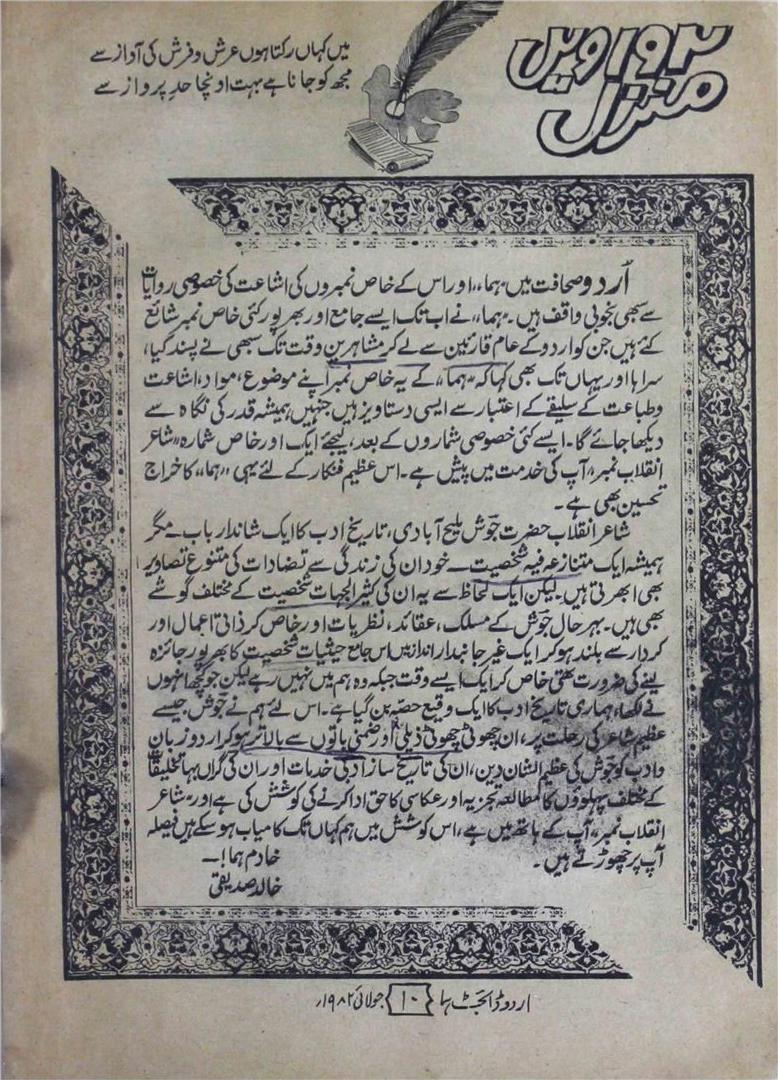 ۱۹۲ ویں
منزل
میں کہاں رکتا ہوں عرش و فرش کی آواز سے
مجھ کو جانا ہے بہت اونچا حدِ پرواز سے
اُردو صحافت میں ”ہما“ اور اس کے خاص نمبروں کی اشاعت کی خصوصی روایات
سے سبھی بخوبی واقف ہیں۔ ”ہما“ نے اب تک ایسے جامع اور بھرپور کئی خاص نمبر شائع
کئے ہیں جن کو اردو کے عام قارئین سے لے کر مشاہرین وقت تک سبھی نے پسند کیا،
سراہا اور یہاں تک بھی کہا کہ ”ہما“ کے یہ خاص نمبر اپنے موضوع، مواد، اشاعت
و طباعت کے سلیقے کے اعتبار سے ایسی دستاویز ہیں جنہیں ہمیشہ قدر کی نگاہ سے
دیکھا جائے گا۔ ایسے کئی خصوصی شماروں کے بعد، لیجئے ایک اور خاص شمارہ ”شاعر
انقلاب نمبر“ آپ کی خدمت میں پیش ہے۔ اس عظیم فنکار کے لئے یہی ”ہما“ کا خراج
تحسین بھی ہے۔
شاعر انقلاب حضرت جوؔش ملیح آبادی، تاریخ ادب کا ایک شاندار باب۔ مگر
ہمیشہ ایک متنازعہ فیہ شخصیت۔ خود ان کی زندگی سے تضادات کی متنوع تصاویر
بھی ابھرتی ہیں۔ لیکن ایک لحاظ سے یہ ان کی کثیر الجہات شخصیت کے مختلف گوشے
بھی ہیں۔ بہرحال جوؔش کے مسلک، عقائد، نظریات اور خاص کر ذاتی اعمال اور
کردار سے بلند ہو کر ایک غیر جانبدار انداز میں اس جامع حیثیات شخصیت کا بھرپور جائزہ
لینے کی ضرورت تھی خاص کر ایک ایسے وقت جبکہ وہ ہم میں نہیں رہے لیکن جو کچھ انہوں
نے لکھا، ہماری تاریخ ادب کا ایک وقیع حصہ بن گیا ہے۔ اس لئے ہم نے جوؔش جیسے
عظیم شاعر کی رحلت پر، ان چھوٹی چھوٹی ذیلی اور ضمنی باتوں سے بالاتر ہو کر اردو زبان
و ادب کو جوؔش کی عظیم الشان دین، ان کی تاریخ ساز ادبی خدمات اور ان کی گراں بہا تخلیقات
کے مختلف پہلوؤں کا مطالعہ تجزیہ اور عکاسی کا حق ادا کرنے کی کوشش کی ہے اور ”شاعر
انقلاب نمبر“ آپ کے ہاتھ میں ہے، اس کوشش میں ہم کہاں تک کامیاب ہو سکے ہیں فیصلہ
آپ پر چھوڑتے ہیں۔
خادم ہما!۔
خالد صدیقی
اردو ڈائجسٹ ہما ۱۰ جولائی ۱۹۸۲ء